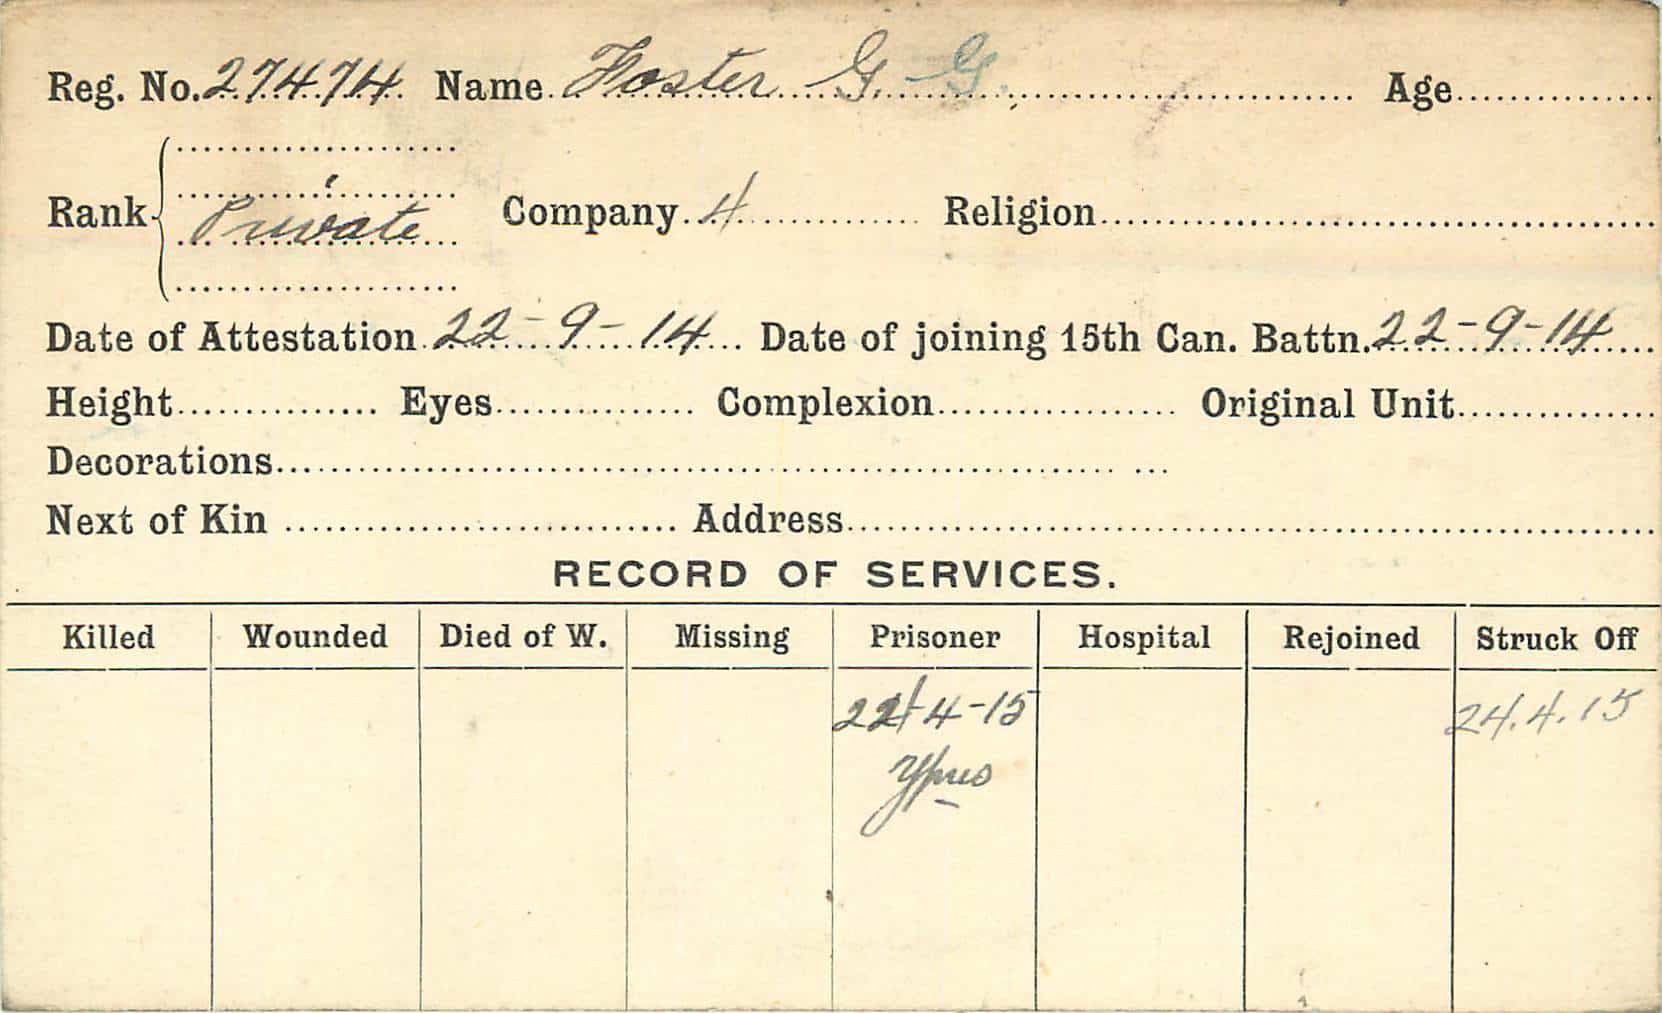 Reg. No. 27474 Name Foster G. G. Age
Rank Private Company 4 Religion
Date of Attestation 22-9-14 Date of joining 15th Can. Battn. 22-9-14
Height Eyes Complexion Original Unit
Decorations
Next of Kin Address
RECORD OF SERVICES.
Killed Wounded Died of W. Missing Prisoner Hospital Rejoined Struck Off
4-15 24.4.15
Ypres